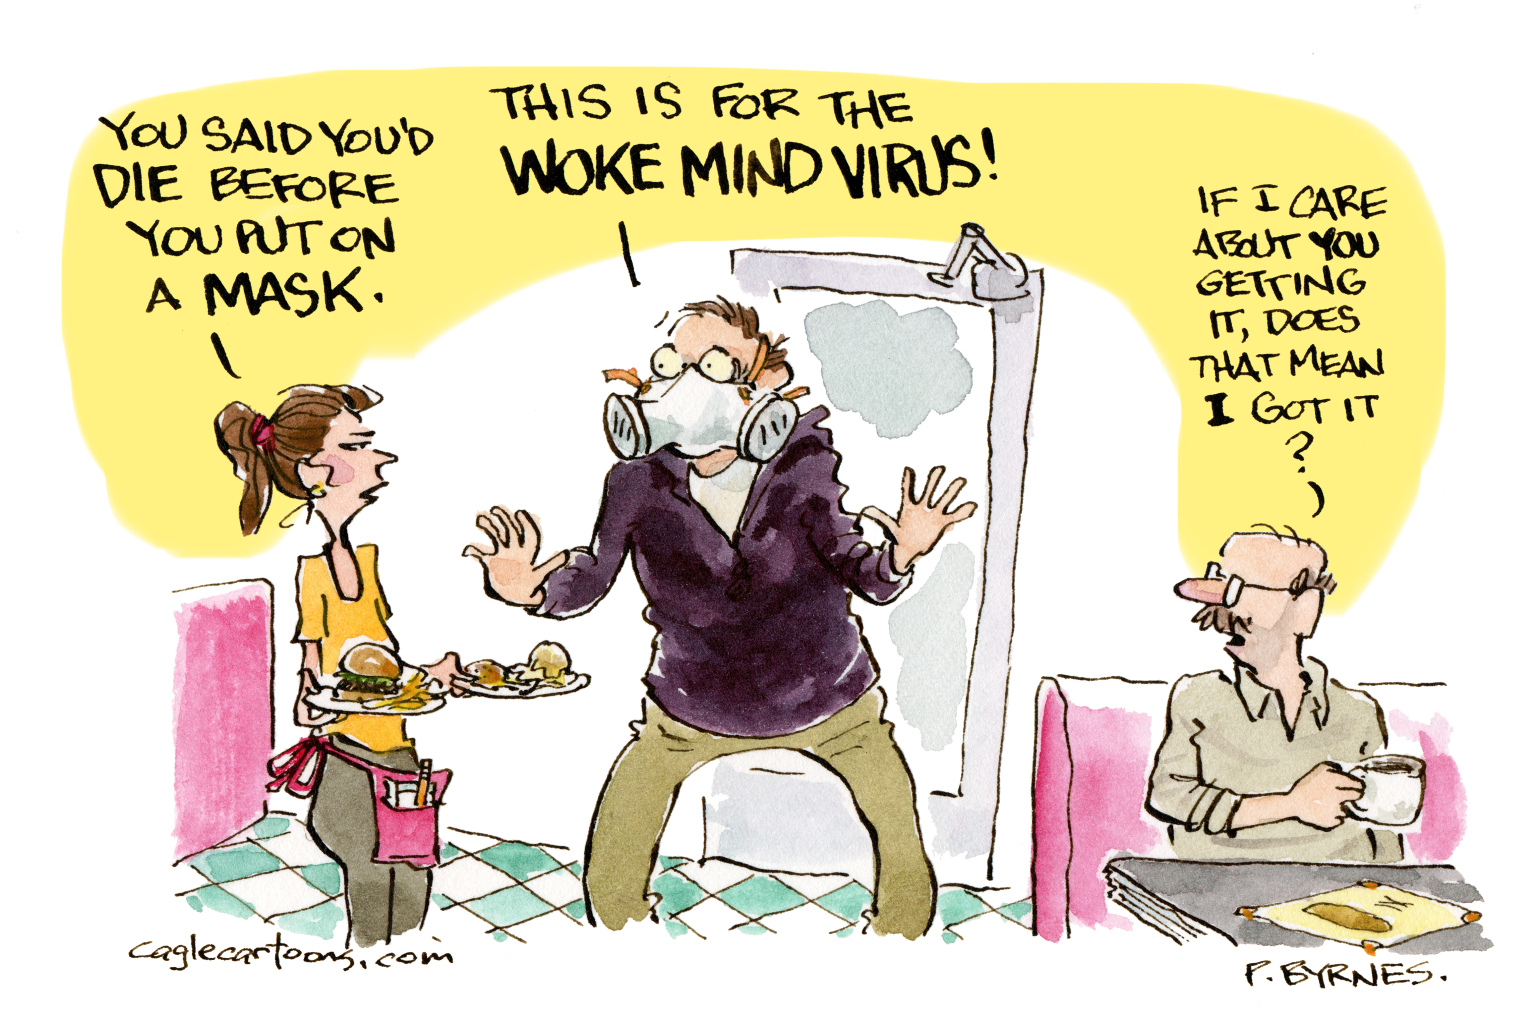 YOU SAID YOU'D
DIE BEFORE
YOU PUT ON
A MASK.
THIS IS FOR THE
WOKE MIND VIRUS!
IF I CARE
ABOUT YOU
GETTING
IT, DOES
THAT MEAN
I GOT IT
?
caglecartoons.com
P. BYRNES.